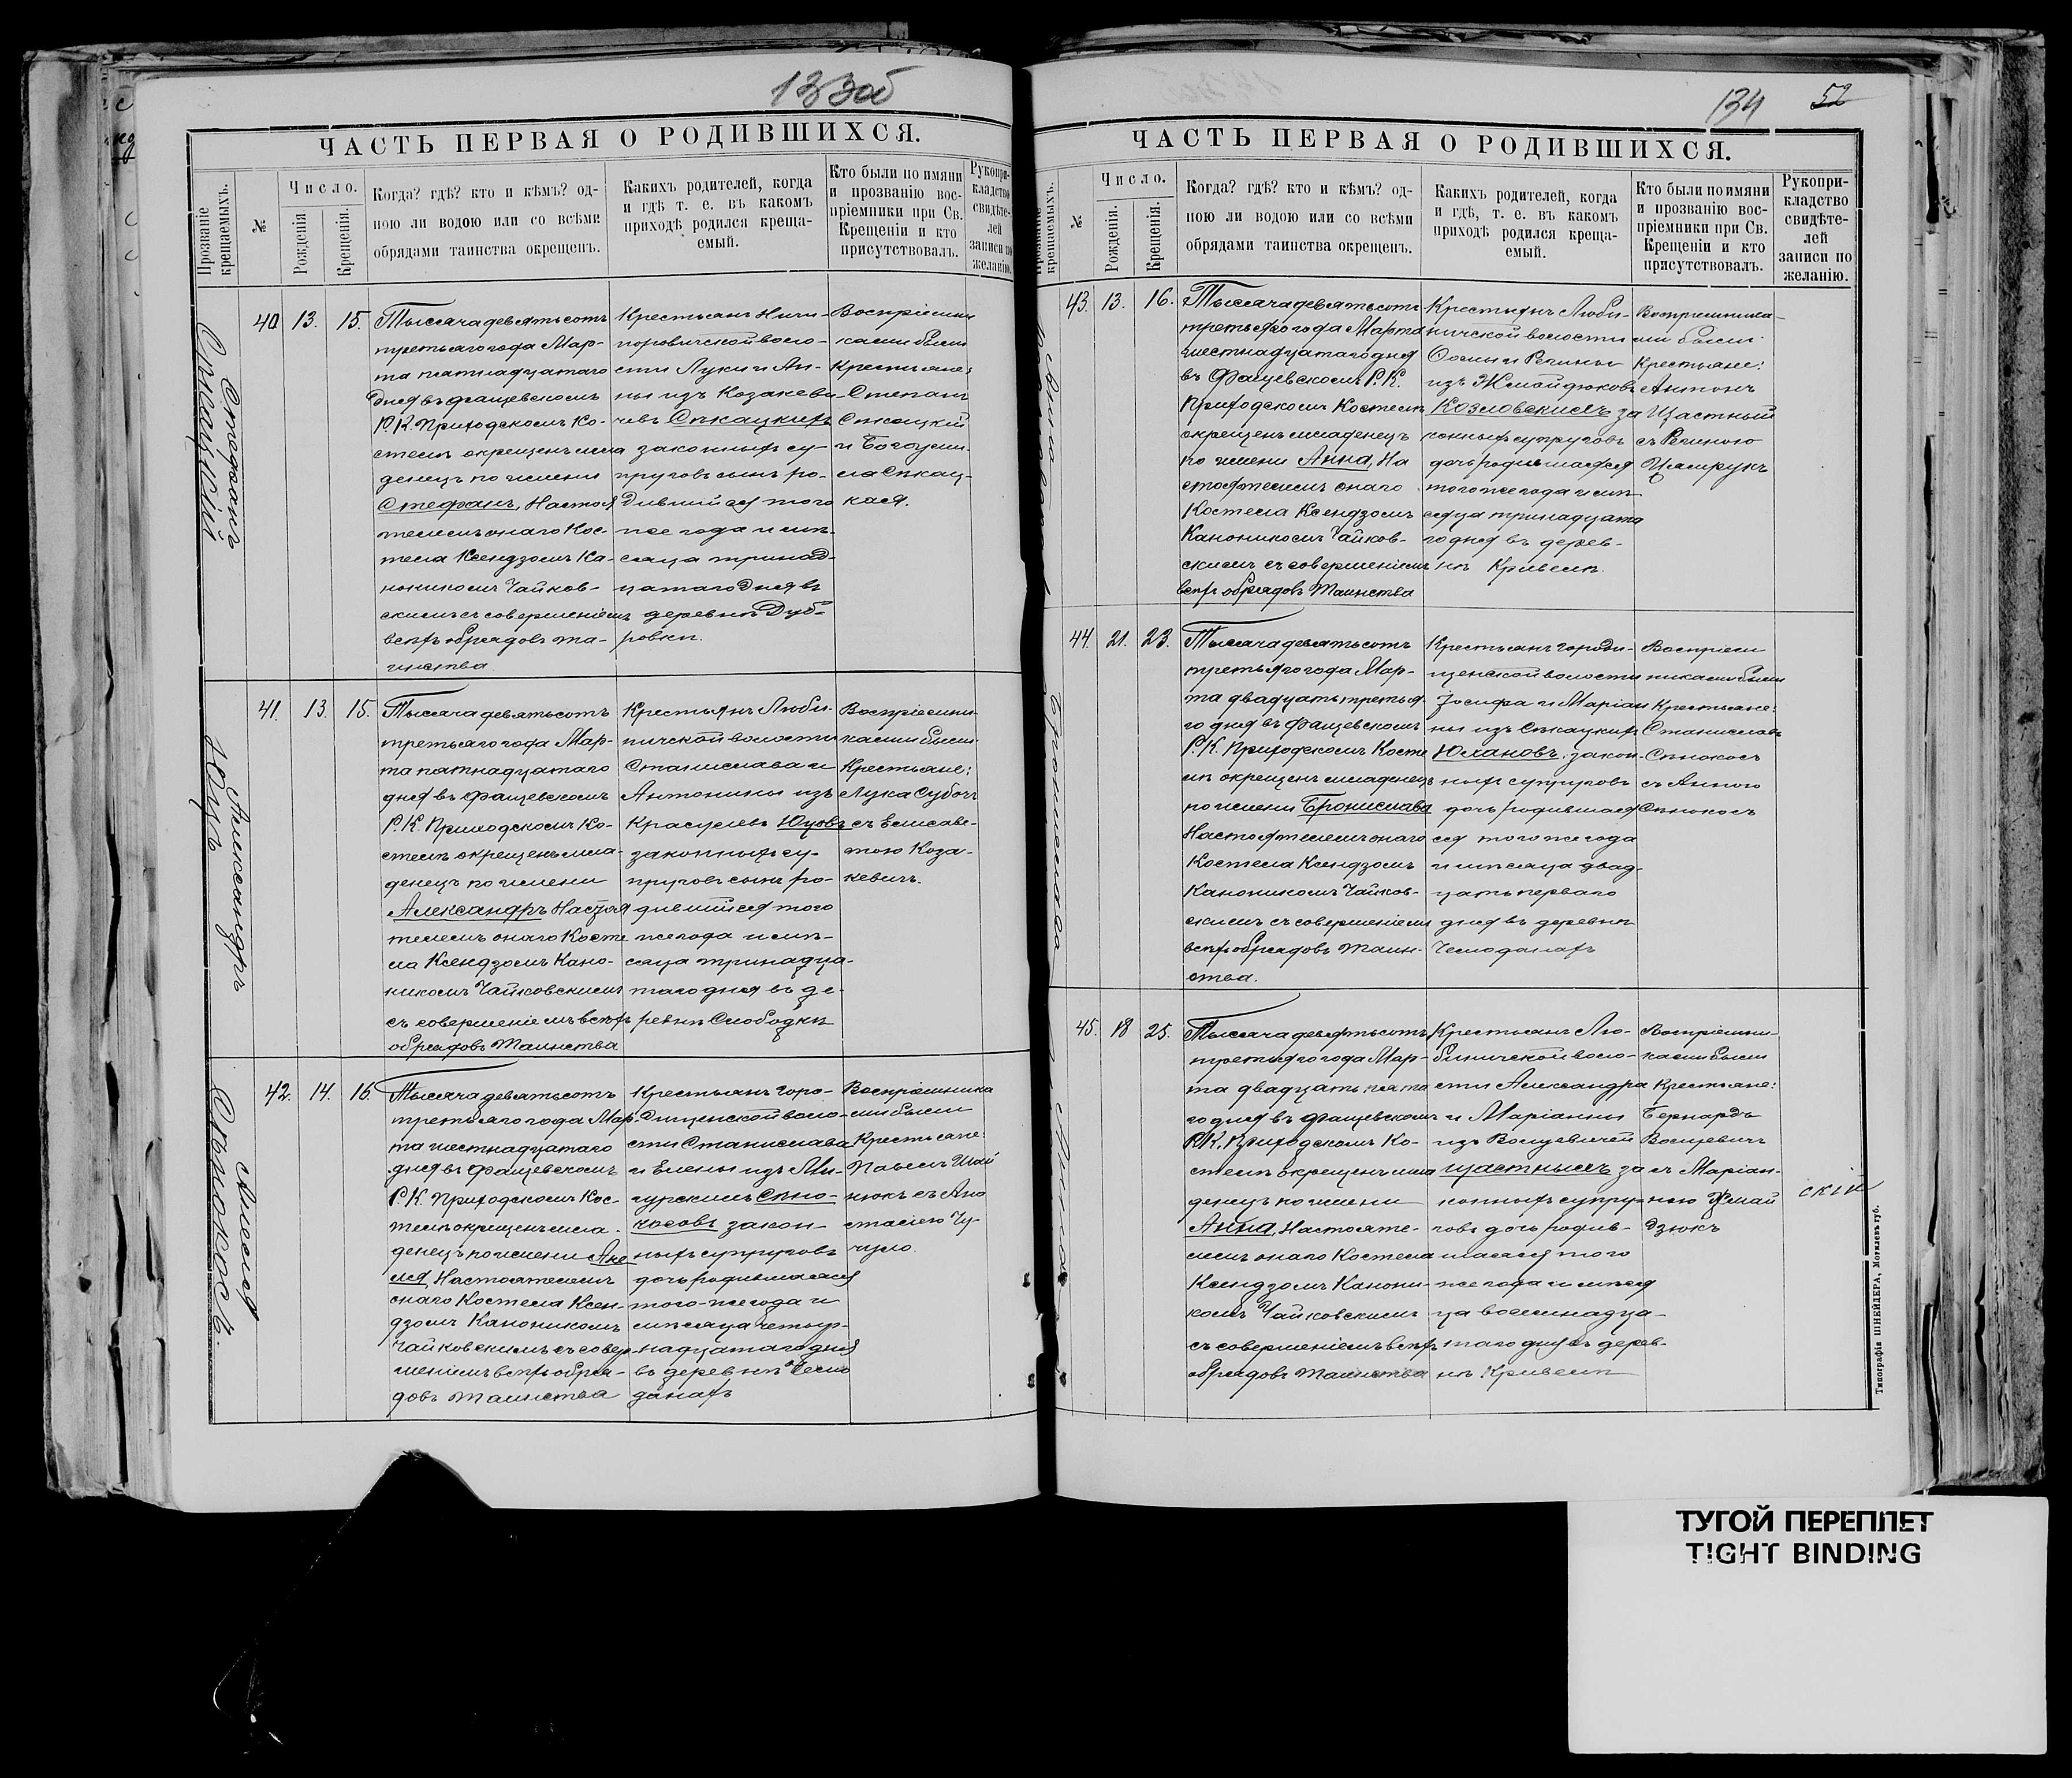 133об
ЧАСТЬ ПЕРВАЯ О РОДИВШИХСЯ.
Прозваніе крещаемыхъ.
№
Число.
Рожденія
Крещенія.
Когда? гдѣ? кто и кѣмъ? од-
ною ли водою или со всѣми
обрядами таинства окрещенъ.
Каких родителей, когда
и гдѣ т. е. въ какомъ
приходѣ родился креща-
емый.
Кто были по имяни
и прозванію вос-
пріемники при Св.
Крещеніи и кто
присутствовалъ.
Рукопри-
кладство
свидѣте-
лей
записи по
желанію.
Стефанъ
40 13. 15.
Тысяча девятьсотъ
третьяго года Мар-
та пятнадцатаго
дня въ Фащевскомъ
Р. К. Приходскомъ Ко-
стелѣ окрещенъ мла
денецъ по имени
Стефанъ, Настоя
телемъ онаго Кос-
тела Ксендзомъ Ка-
ноникомъ Чайков-
скимъ съ совершеніемъ
всѣхъ обрядовъ та-
инства.
Крестьянъ Ничи-
поровичской воло-
сти Луки и Ан-
ны изъ Козакеви-
чевъ Сѣкацкихъ
законныхъ су-
пруговъ сынъ ро-
дившійся того
же года и мѣ-
сяца тринад-
цатаго дня въ
деревнѣ Дуб-
ровки.
Воспріемни
ками были
Крестьяне:
Степанъ
Сѣкацкій
и Богуми-
ла Сѣкац-
кая.
Александръ
Юцъ
41. 13. 15.
Тысяча девятьсотъ
третьяго года Мар-
та пятнадцатаго
дня въ Фащевскомъ
Р. К. Приходскомъ Ко-
стелѣ окрещенъ мла-
денецъ по имени
Александръ Настоя
телемъ онаго Косте
ла Ксендзомъ Кано-
никомъ Чайковскимъ
съ совершеніемъ всѣхъ
обрядовъ Таинства
Крестьянъ Люби-
ничской волости
Станислава и
Антонины изъ
Юцовъ
законныхъ су-
пруговъ сынъ ро-
дившійся того
же года и мѣ-
сяца тринадца-
таго дня въ де-
ревнѣ Слободкѣ
Воспріемни-
ками были
Крестьяне:
Лука Суботъ
съ Елисаве-
тою Коза-
кевичъ.
Амелія
Сѣнокосъ.
42. 14. 16.
Тысяча девятьсотъ
третьяго года Мар-
та шестнадцатаго
дня въ Фащевскомъ
Р. К. Приходскомъ Кос-
телѣ окрещенъ мла-
денецъ по имени Аме
лія Настоятелемъ
онаго Костела Ксен-
дзомъ Каноникомъ
Чайковскимъ съ совер-
шеніемъ всѣхъ обря-
довъ Таинства
Крестьянъ Горо-
дищенской воло-
сти Станислава
и Елены изъ
Сѣно-
косовъ закон-
ныхъ супруговъ
дочь родившаяся
того-же года и
мѣсяца четыр-
надцатаго дня
въ деревнѣ Чемо
данахъ
Воспріемника
ми были
Крестьяне:
Павелъ
съ Ана
стасіею Чу-
чуло.
134 52
ЧАСТЬ ПЕРВАЯ О РОДИВШИХСЯ.
Прозваніе крещаемыхъ.
№
Число.
Рожденія.
Крещенія.
Когда? гдѣ? кто и кѣмъ? од-
ною ли водою или со всѣми
обрядами таинства окрещенъ.
Какихъ родителей, когда
и гдѣ, т. е. въ какомъ
приходѣ родился креща-
емый.
Кто были по имяни
и прозванію вос-
пріемники при Св.
Крещеніи и кто
присутствовалъ.
Рукопри-
кладство
свидѣте-
лей
записи по
желанію.
43. 13. 16.
Тысяча девятьсотъ
третьяго года Марта
шестнадцатаго дня
въ Фащевскомъ Р. К.
Приходскомъ Костелѣ
окрещенъ младенецъ
по имени Анна, На
стоятелемъ онаго
Костела Ксендзомъ
Каноникомъ Чайков-
скимъ съ совершеніемъ
всѣхъ обрядовъ Таинства
Крестьянъ Люби-
ничской волости
Ѳомы и Регины
изъ Жмайдюковъ
Козловскихъ за
конныхъ супруговъ
дочь родившаяся
того же года и мѣ
сяца тринадцата
го дня въ дерев-
нѣ Кривелѣ.
Воспріемника-
ми были
Крестьяне:
Антонъ
Щастный
съ Региною
44. 21. 23.
Тысяча девятьсотъ
третьяго года Мар-
та двадцать третья-
го дня въ Фащевскомъ
Р. К. Приходскомъ Косте
лѣ окрещенъ младенецъ
по имени Брониславa
Настоятелемъ онаго
Костела Ксендзомъ
Каноникомъ Чайков-
скимъ съ совершеніемъ
всѣхъ обрядовъ Таин-
ства.
Крестьянъ Городи-
щенской волости
Іосифа и Маріан
ны изъ Сѣкацкихъ
Юхановъ, закон-
ныхъ супруговъ
дочь родившаяся
ся того же года
и мѣсяца двад-
цать перваго
дня въ деревнѣ
Чемоданахъ
Воспріем
никами были
Крестьяне:
Станиславъ
Сѣнокосъ
съ Анною
Сѣнокосъ
45. 18 25.
Тысяча девятьсотъ
третьяго года Мар-
та двадцать пята
го дня въ Фащевскомъ
Р. К. Приходскомъ Ко-
стелѣ окрещенъ мла
денецъ по имени
Анна, Настояте-
лемъ онаго Костела
Ксендзомъ Канони-
комъ Чайковскимъ
съ совершеніемъ всѣхъ
обрядовъ Таинства
Крестьянъ Лю-
биничской воло-
сти Александра
и Маріанны
изъ Воляевичей
Щастныхъ за
конныхъ супру-
говъ дочь родив-
шаяся того
же года и мѣся
ца восемнадца-
таго дня въ дерев-
нѣ Кривелѣ
Воспріемни-
ками были
Крестьяне:
Бернардъ
съ Маріан-
ною Жмай
дзюкъ
Типографія ШНЕЙДЕРА, Могилевъ губ.
ТУГОЙ ПЕРЕПЛЕТ
TIGHT BINDING